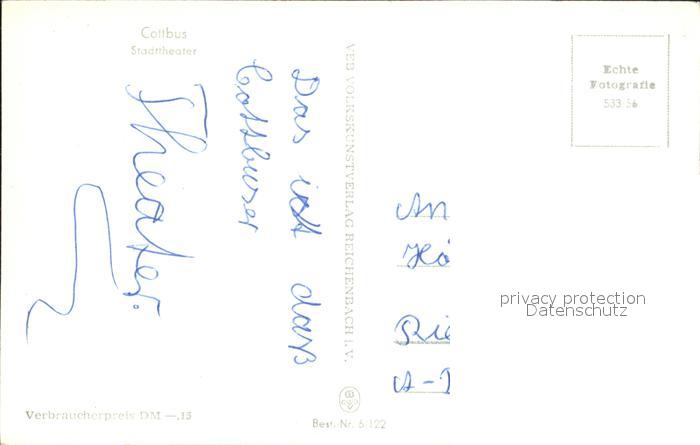 Cottbus
Stadttheater
Das ist daß
Cottbuser
Theater.
VEB VOLKSKUNSTVERLAG REICHENBACH I. V.
Echte
Fotografie
533 56
An
Hö
Rie
A-1
privacy protection
Datenschutz
Verbraucherpreis DM —,15
Best.-Nr. 6/122